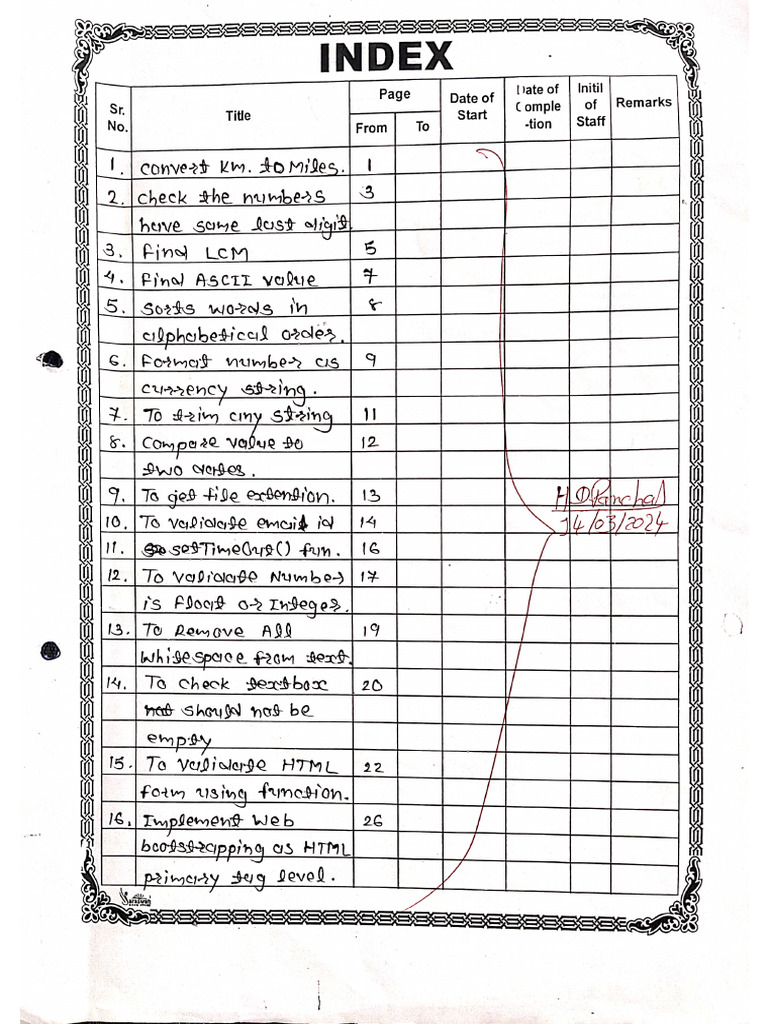 INDEX
Sr. No. Title Page From To Date of Start Date of Comple -tion Initil of Staff Remarks
1. convert km. to Miles. 1
2. check the numbers 3
have same last digit.
3. find LCM 5
4. find ASCII value 7
5. sorts words in 8
alphabetical order.
6. format number as 9
currency string.
7. To trim any string 11
8. Compare value to 12
two dates.
9. To get file extention. 13
10. To validate email id 14
11. setTimeOut() fun. 16
12. To validate Number 17
is float or Integer.
13. To Remove All 19
Whitespace from text.
14. To check textbox 20
not should not be
empty
15. To validate HTML 22
form using function.
16. Implement Web 26
bootstrapping as HTML
primary tag level.
H D Panchal
14/03/2024